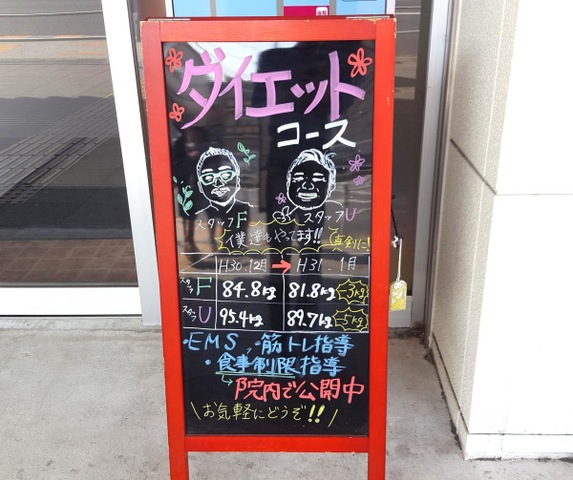 ダイエット
コース
スタッフF スタッフU
僕達もやってます!! 真剣に!
H30.12月 → H31.1月
スタッフF 84.8kg 81.8kg -3kg
スタッフU 95.4kg 89.7kg -5kg
・EMS ・筋トレ指導
・食事制限指導
↳院内で公開中
\お気軽にどうぞ!!/